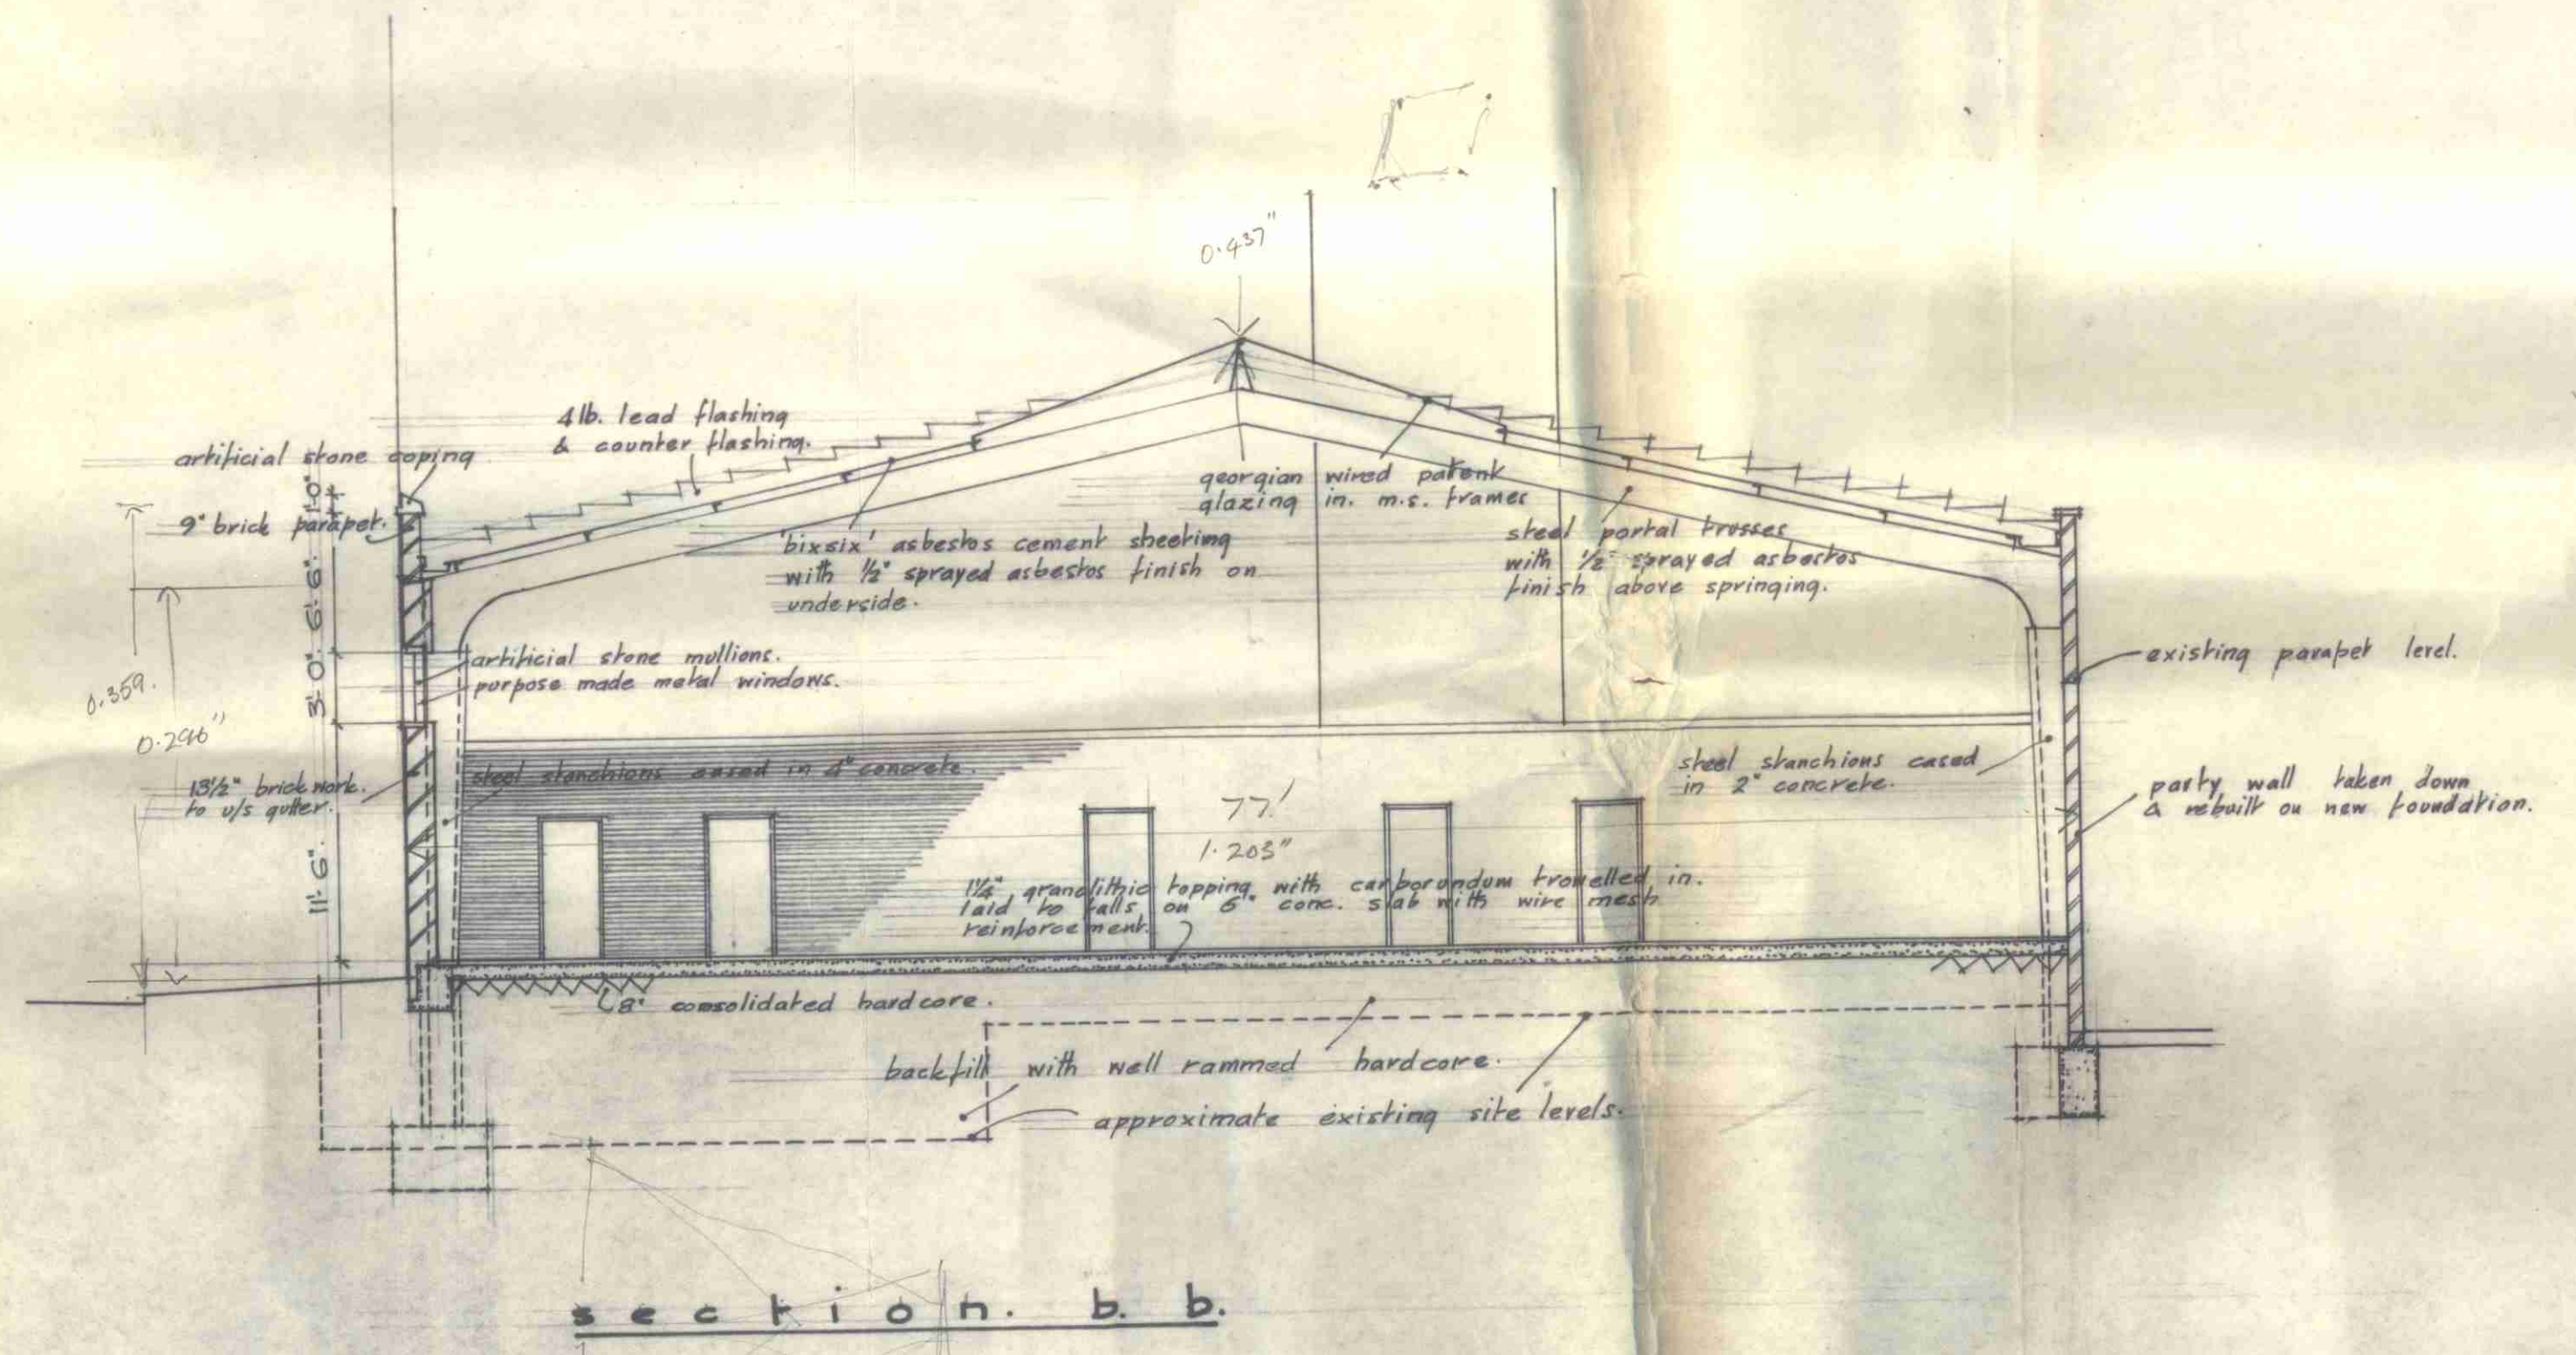 0.437"
4lb. lead flashing
& counter flashing.
artificial stone coping
1'0"
9" brick parapet.
georgian wired patent
glazing in. m.s. frames
'bixsix' asbestos cement sheeting
with ½" sprayed asbestos finish on
underside.
steel portal trusses
with ½" sprayed asbestos
finish above springing.
6'.6"
artificial stone mullions.
purpose made metal windows.
3'.0"
0.359.
0.296"
existing parapet level.
13½" brickwork.
to u/s gutter.
steel stanchions cased in 4" concrete.
steel stanchions cased
in 2" concrete.
party wall taken down
& rebuilt on new foundation.
77'
1.203"
11'.6".
1¼" granolithic topping with carborundum trowelled in.
laid to falls on 6" conc. slab with wire mesh
reinforcement.
8" consolidated hardcore.
backfill with well rammed hardcore.
approximate existing site levels.
section. b. b.